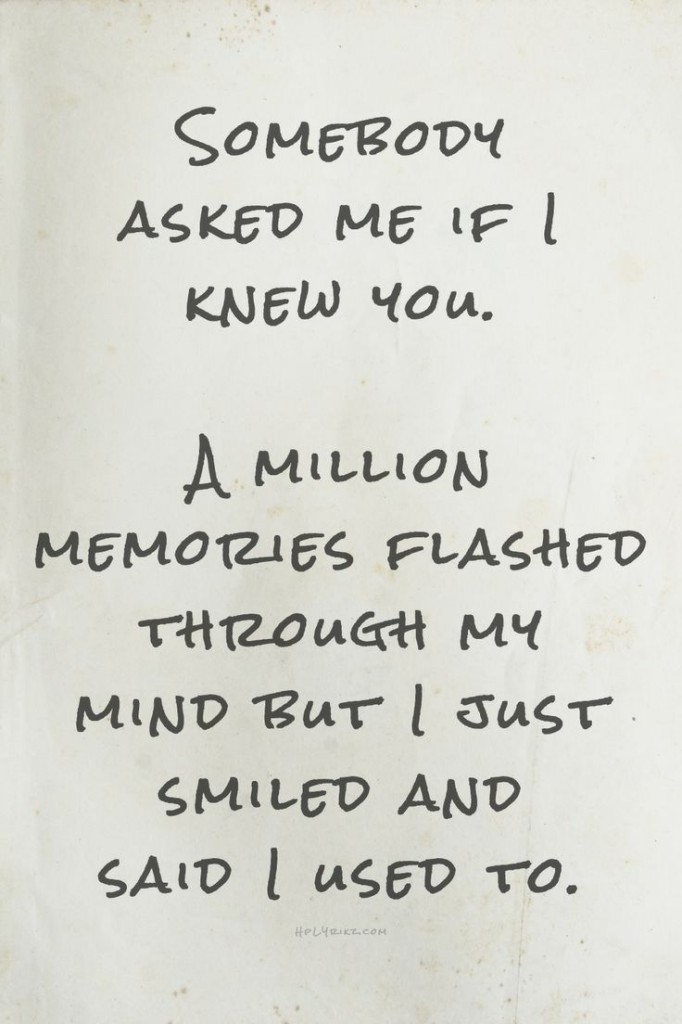 SOMEBODY
ASKED ME IF I
KNEW YOU.
A MILLION
MEMORIES FLASHED
THROUGH MY
MIND BUT I JUST
SMILED AND
SAID I USED TO.
HDLYRIKZ.COM